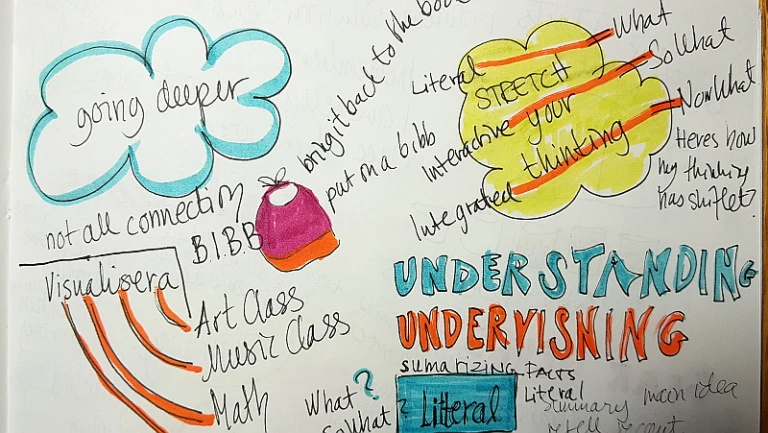 going deeper
bring it back to the book
put on a bibb
not all connection
B.I.B.B
Literal
Interactive
Integrated
STRETCH
your
thinking
What
So What
Now What
Heres how
my thinking
has shiftet
Visualisera
Art Class
Music Class
Math
UNDERSTANDING
UNDERVISNING
sumarizing facts
Litteral
Literal
Summary main idea
retell recount
What?
So What?